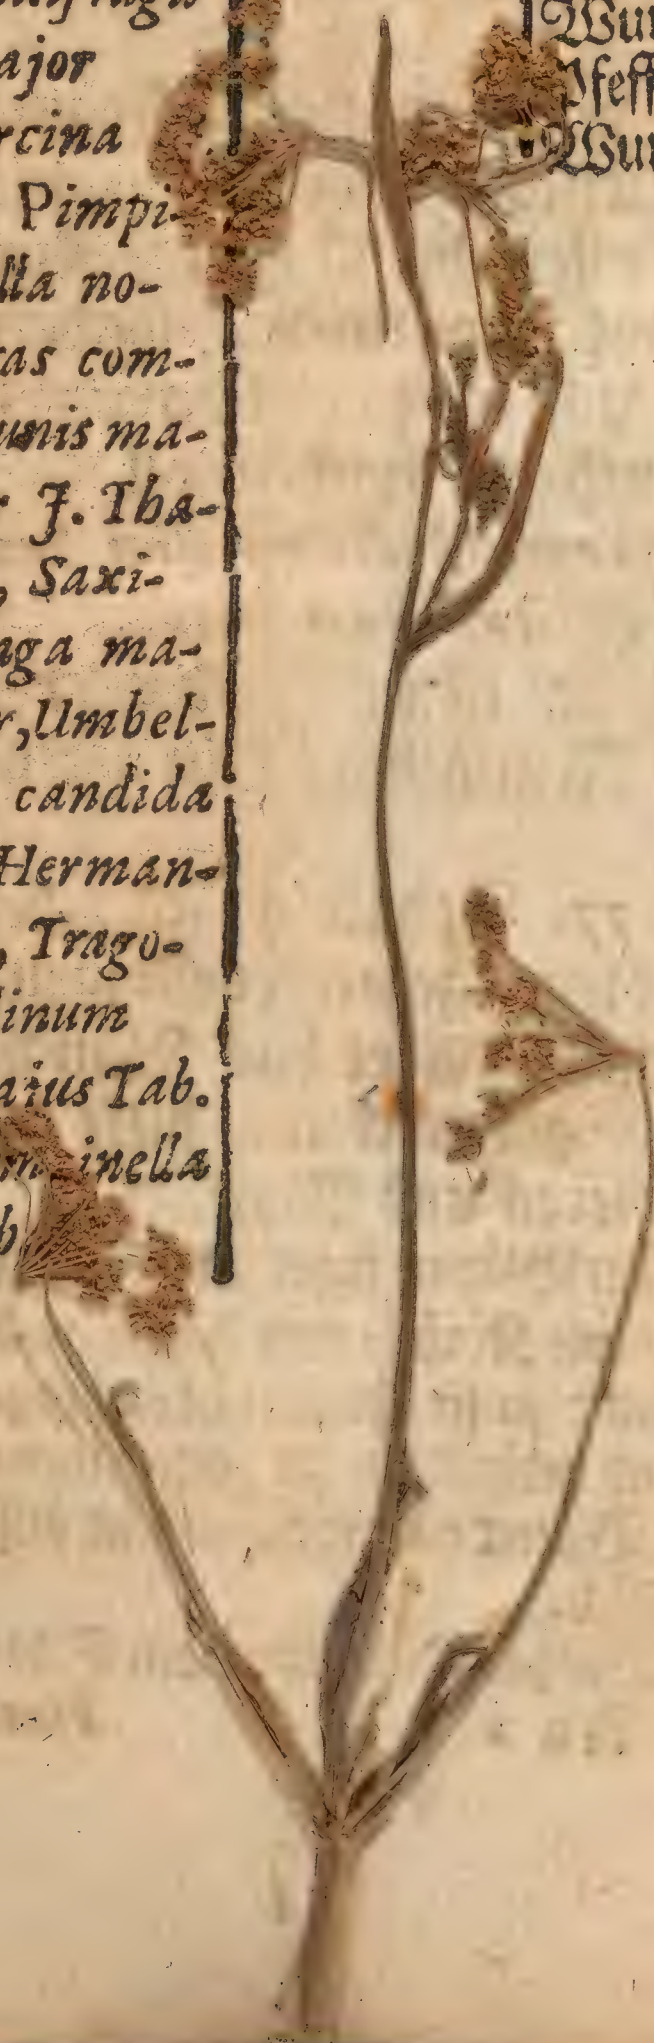 ajor
rcina
Pimpi-
lla no-
ras com-
unis ma-
r J. Tha-
, Saxi-
aga ma-
r, Umbel-
candida
Herman-
, Trago-
linum
Tab.
inella
b
Wur
Pfeff
Wur